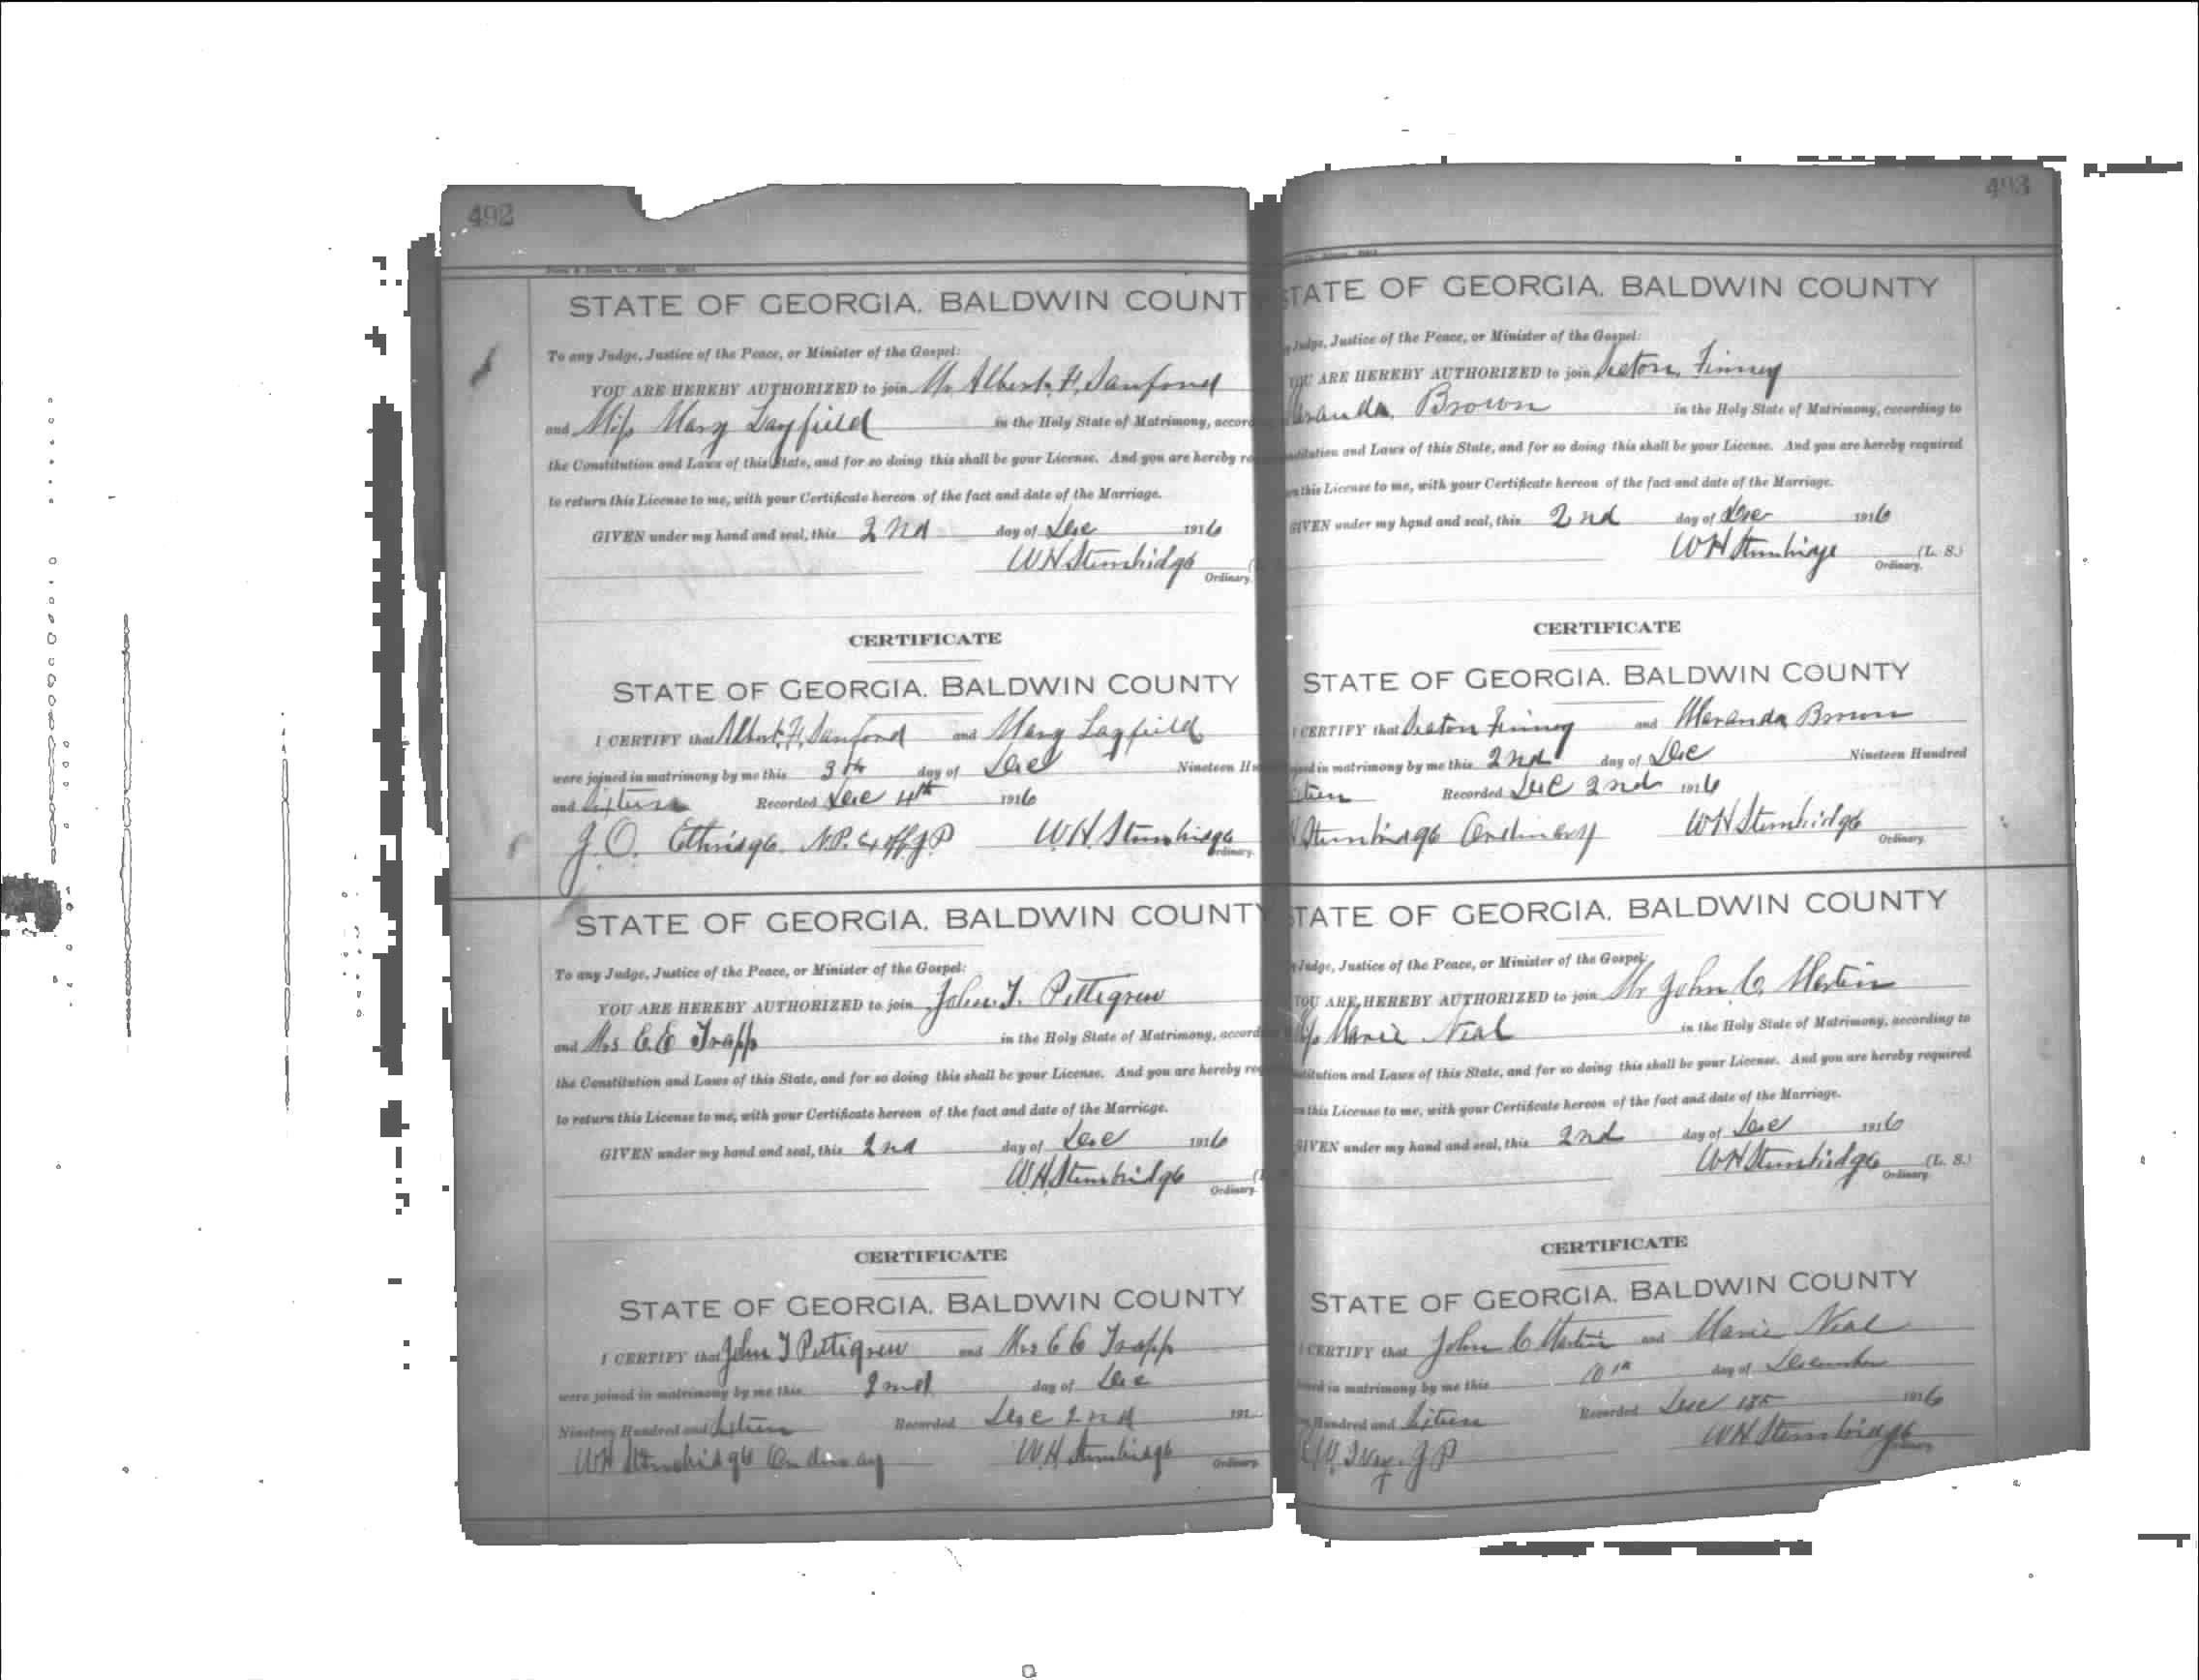 492
STATE OF GEORGIA. BALDWIN COUNT
To any Judge, Justice of the Peace, or Minister of the Gospel:
YOU ARE HEREBY AUTHORIZED to join Mr Albert. H. Sanford
and Miss Mary Layfield in the Holy State of Matrimony, accord
the Constitution and Laws of this State, and for so doing this shall be your License. And you are hereby re
to return this License to me, with your Certificate hereon of the fact and date of the Marriage.
GIVEN under my hand and seal, this 2nd day of Dec 1916
W H Stembridge
Ordinary.
CERTIFICATE
STATE OF GEORGIA. BALDWIN COUNTY
I CERTIFY that Albert. H. Sanford and Mary Layfield
were joined in matrimony by me this 3th day of Dec Nineteen Hu
and Sixteen Recorded Dec 4th 1916
J. O. Ethridge. N.P. Ex off J P W. H. Stembridge
Ordinary.
STATE OF GEORGIA. BALDWIN COUNTY
To any Judge, Justice of the Peace, or Minister of the Gospel:
YOU ARE HEREBY AUTHORIZED to join John. T. Pettigrew
and Mrs E E Trapp in the Holy State of Matrimony, accord
the Constitution and Laws of this State, and for so doing this shall be your License. And you are hereby req
to return this License to me, with your Certificate hereon of the fact and date of the Marriage.
GIVEN under my hand and seal, this 2nd day of Dec 1916
W. H. Stembridge
Ordinary.
CERTIFICATE
STATE OF GEORGIA. BALDWIN COUNTY
I CERTIFY that John T Pettigrew and Mrs E E Trapp
were joined in matrimony by me this 2nd day of Dec
Nineteen Hundred and Sixteen Recorded Dec 2nd 191
W H Stembridge Ordinary W. H Stembridge
Ordinary.
493
STATE OF GEORGIA. BALDWIN COUNTY
Judge, Justice of the Peace, or Minister of the Gospel:
YOU ARE HEREBY AUTHORIZED to join Seaton. Finney
Brown in the Holy State of Matrimony, according to
stitution and Laws of this State, and for so doing this shall be your License. And you are hereby required
this License to me, with your Certificate hereon of the fact and date of the Marriage.
GIVEN under my hand and seal, this 2nd day of Dec 1916
W H Stembridge (L. S.)
Ordinary.
CERTIFICATE
STATE OF GEORGIA. BALDWIN COUNTY
I CERTIFY that Seaton Finney and Meranda Brown
in matrimony by me this 2nd day of Dec Nineteen Hundred
Recorded Dec 2nd 1916
Stembridge Ordinary W H Stembridge
Ordinary.
STATE OF GEORGIA. BALDWIN COUNTY
Judge, Justice of the Peace, or Minister of the Gospel:
YOU ARE HEREBY AUTHORIZED to join Mr John. C. Martin
Marie Neal in the Holy State of Matrimony, according to
stitution and Laws of this State, and for so doing this shall be your License. And you are hereby required
this License to me, with your Certificate hereon of the fact and date of the Marriage.
GIVEN under my hand and seal, this 2nd day of Dec 1916
W H Stembridge (L. S.)
Ordinary
CERTIFICATE
STATE OF GEORGIA. BALDWIN COUNTY
I CERTIFY that John C Martin and Marie Neal
in matrimony by me this 10th day of December
Hundred and Sixteen Recorded Dec 1916
Ivey. J P W H Stembridge